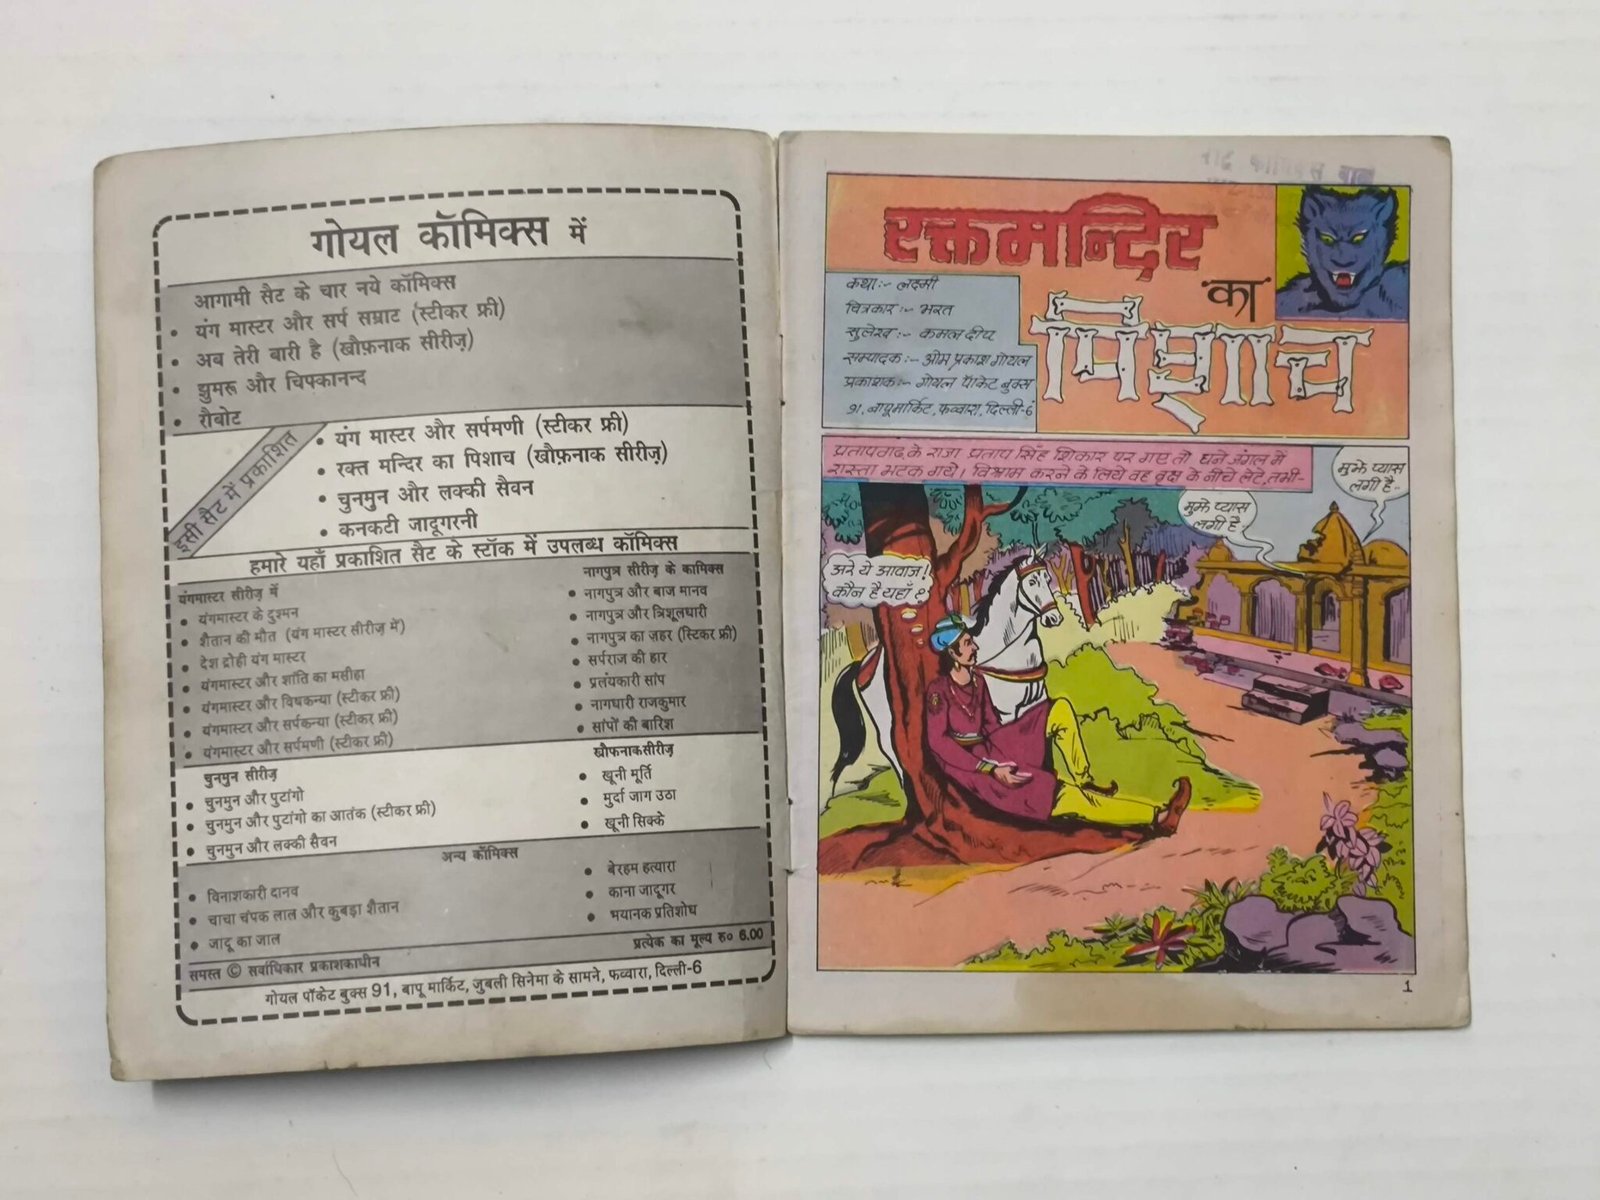 गोयल कॉमिक्स में
आगामी सैट के चार नये कॉमिक्स
• यंग मास्टर और सर्प सम्राट (स्टीकर फ्री)
• अब तेरी बारी है (खौफ़नाक सीरीज़)
• झुमरू और चिपकानन्द
• रौबोट
इसी सैट में प्रकाशित
• यंग मास्टर और सर्पमणी (स्टीकर फ्री)
• रक्त मन्दिर का पिशाच (खौफ़नाक सीरीज़)
• चुनमुन और लक्की सैवन
• कनकटी जादूगरनी
हमारे यहाँ प्रकाशित सैट के स्टॉक में उपलब्ध कॉमिक्स
यंगमास्टर सीरीज़ में
• यंगमास्टर के दुश्मन
• शैतान की मौत (यंग मास्टर सीरीज़ में)
• देश द्रोही यंग मास्टर
• यंगमास्टर और शांति का मसीहा
• यंगमास्टर और विषकन्या (स्टीकर फ्री)
• यंगमास्टर और सर्पकन्या (स्टीकर फ्री)
• यंगमास्टर और सर्पमणी (स्टीकर फ्री)
नागपुत्र सीरीज़ के कामिक्स
• नागपुत्र और बाज मानव
• नागपुत्र और त्रिशूलधारी
• नागपुत्र का ज़हर (स्टिकर फ्री)
• सर्पराज की हार
• प्रलंयकारी सांप
• नागधारी राजकुमार
• सांपों की बारिश
चुनमुन सीरीज़
• चुनमुन और पुटांगो
• चुनमुन और पुटांगो का आतंक (स्टीकर फ्री)
• चुनमुन और लक्की सैवन
खौफनाक सीरीज़
• खूनी मूर्ति
• मुर्दा जाग उठा
• खूनी सिक्के
अन्य कॉमिक्स
• विनाशकारी दानव
• चाचा चंपक लाल और कुबड़ा शैतान
• जादू का जाल
• बेरहम हत्यारा
• काना जादूगर
• भयानक प्रतिशोध
प्रत्येक का मूल्य रु० 6.00
समस्त © सर्वाधिकार प्रकाशकाधीन
गोयल पॉकेट बुक्स 91, बापू मार्किट, जुबली सिनेमा के सामने, फव्वारा, दिल्ली-6
रक्तमन्दिर
का
पिशाच
कथा:- लक्ष्मी
चित्रकार:- भरत
सुलेख:- कमल दीप
सम्पादक:- ओम प्रकाश गोयल
प्रकाशक:- गोयल पॅाकेट बुक्स
91, बापू मार्किट, फव्वारा, दिल्ली-6
प्रतापगढ़ के राजा प्रताप सिंह शिकार पर गए तो घने जंगल में
रास्ता भटक गये। विश्राम करने के लिये वह वृक्ष के नीचे लेटे, तभी-
मुझे प्यास
लगी है..
मुझे प्यास
लगी है..
अरे ये आवाज!
कौन है यहाँ?
1